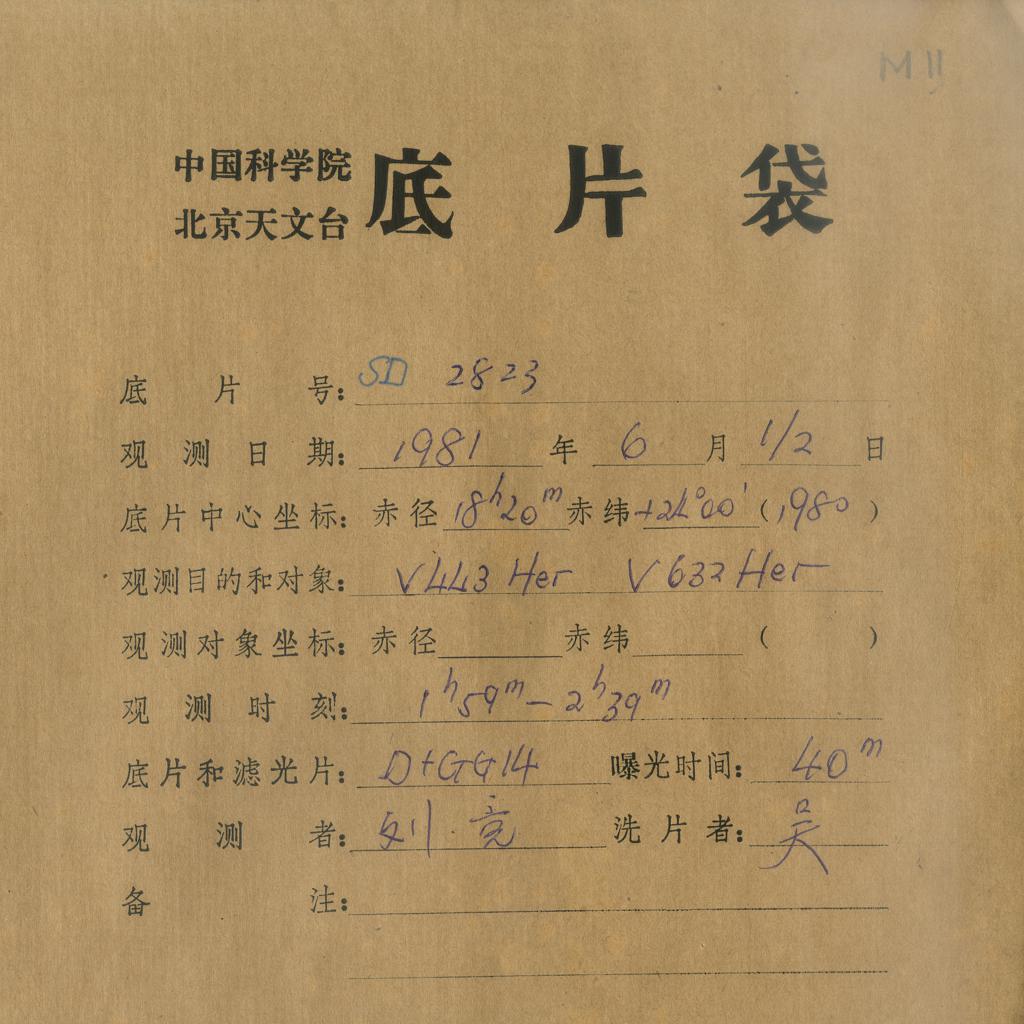 M 11
中国科学院
北京天文台
底片袋
底片号: SD 2823
观测日期: 1981 年 6 月 1/2 日
底片中心坐标: 赤径 18h20m 赤纬 +24°00' (1980)
观测目的和对象: V443 Her V632 Her
观测对象坐标: 赤径 赤纬 ( )
观测时刻: 1h59m - 2h39m
底片和滤光片: D+GG14 曝光时间: 40m
观测者: 刘 竞 洗片者: 吴
备注: